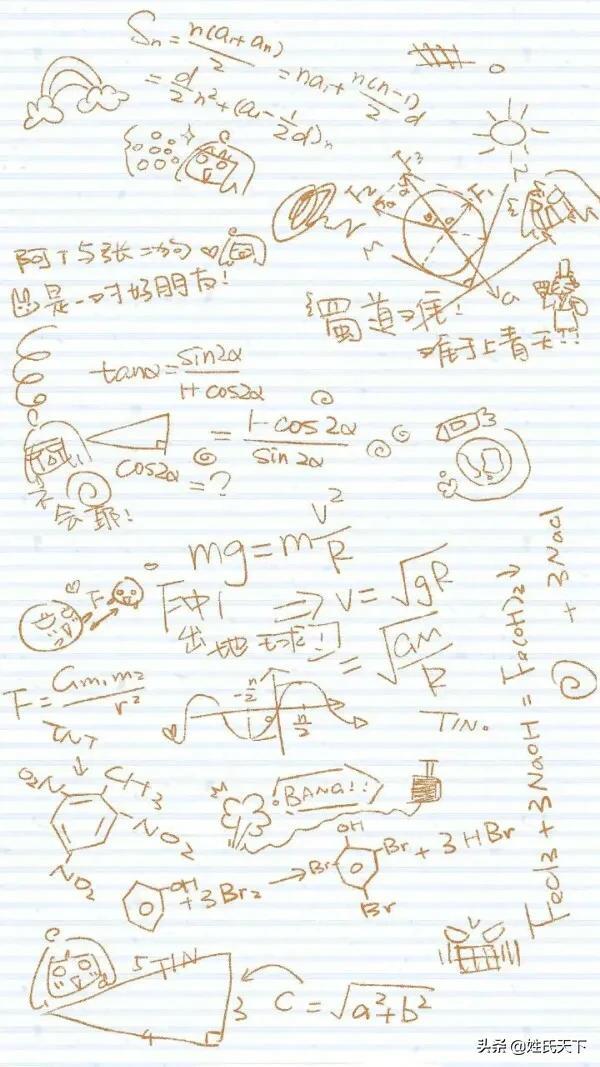 Sn = n(a1+an)/2 = na1 + n(n-1)/2 d
= d/2 n² + (a1 - 1/2 d)n
F3
F2
F1
阿丁与张二狗
是一对好朋友!
蜀道难!
难于上青天!!
tanα = sin2α/1+cos2α
= 1-cos2α/sin2α
cos2α = ?
不会耶!
mg = m v²/R
F
冲出地球! ⇒ v = √gR
= √GM/R
F = Gm1m2/r²
-π/2
π/2
TIN.
TNT
↓
O2N
CH3
NO2
NO2
BANG!!
OH + 3Br2 → OH Br Br Br + 3HBr
FeCl3 + 3NaOH = Fe(OH)3↓ + 3NaCl
5 TIN
3
4
C = √a²+b²
头条 @姓氏天下